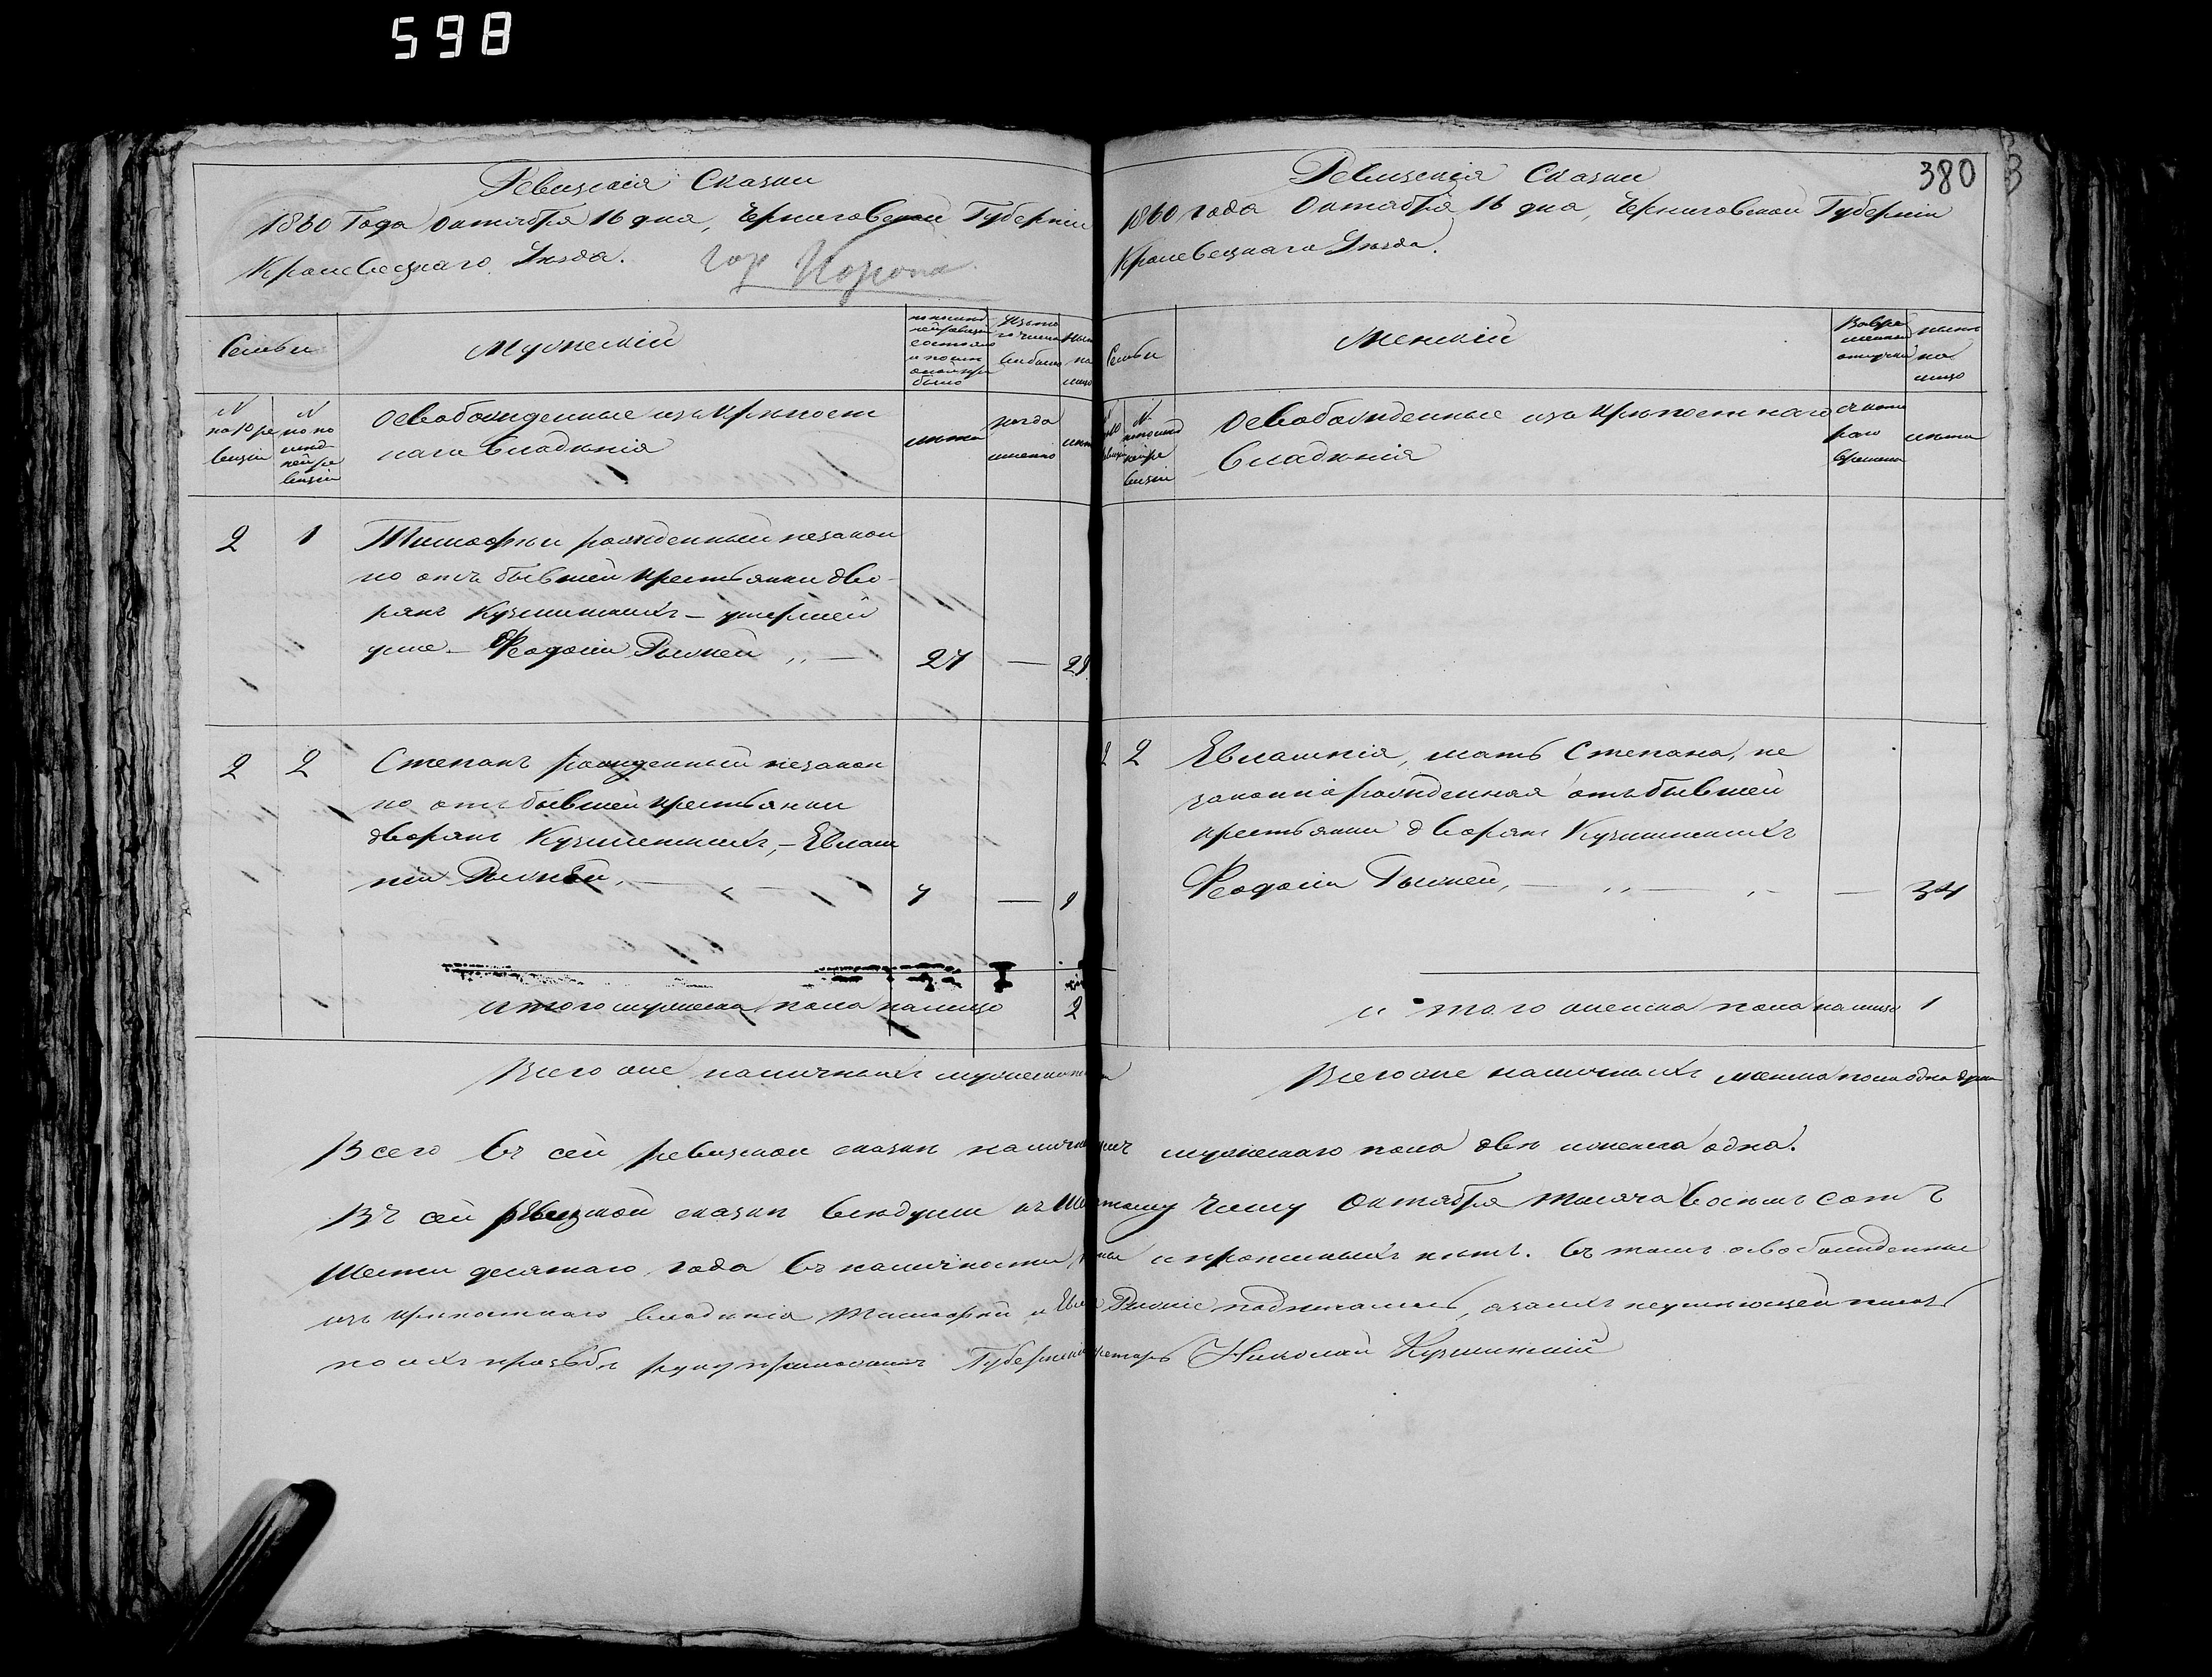 598
Ревизская Сказки
1860 Года Октября 16 дня, Черниговской Губернiи
Кролевецкаго Уѣзда. гор Коропа.
Семьи
Мужескiй
выбыло
№ по 10 ревизiи
№ по послѣдней ревизiи
Освобожденные изъ крѣпост
наго владѣнiя
лѣта
когда именно
лѣта
2 1 Тимофѣй рожденный незакон
но отъ бывшей крестьянки дво
рянъ Кузминскихъ – умершей
уже – Феодосiи Рыжей „ — 27 — 29
2 2 Степанъ рожденный незакон
но отъ бывшей крестьянки
дворянъ Кузминскихъ, – Евлам
пiи Рыжей, — 7 — 9
итого мужеска пола налицо 2
Всего же наличныхъ мужеска
380
Ревизская Сказки
1860 года Октября 16 дня, Черниговской Губернiи
Кролевецкаго Уѣзда.
Семьи
Женскiй
нынѣ на лицо
№ по послѣдней ревизiи
Освобожденные изъ крѣпостнаго
владѣнiя
лѣта
2 2 Евлампiя, мать Степана, не
законно рожденная отъ бывшей
крестьянки дворянъ Кузминскихъ
Феодосiи Рыжей, — 34
итого женска пола налицо 1
Всего же наличныхъ женска пола одна душа
Всего въ сей ревизской сказкѣ наличныхъ мужескаго пола двѣ и женска одна.
Въ сей ревизской сказкѣ всѣ души къ числу Октября тысяча восемь сотъ
шесть десятаго года въ наличности и прописныхъ нѣтъ. въ томъ освобожденные
изъ крѣпостнаго владѣнiя Тимофей и Рыжiе подписались, а за ихъ неумѣющей писать
по ихъ просьбѣ руку приложилъ Губернскiй Секретарь Николай Кузминскiй